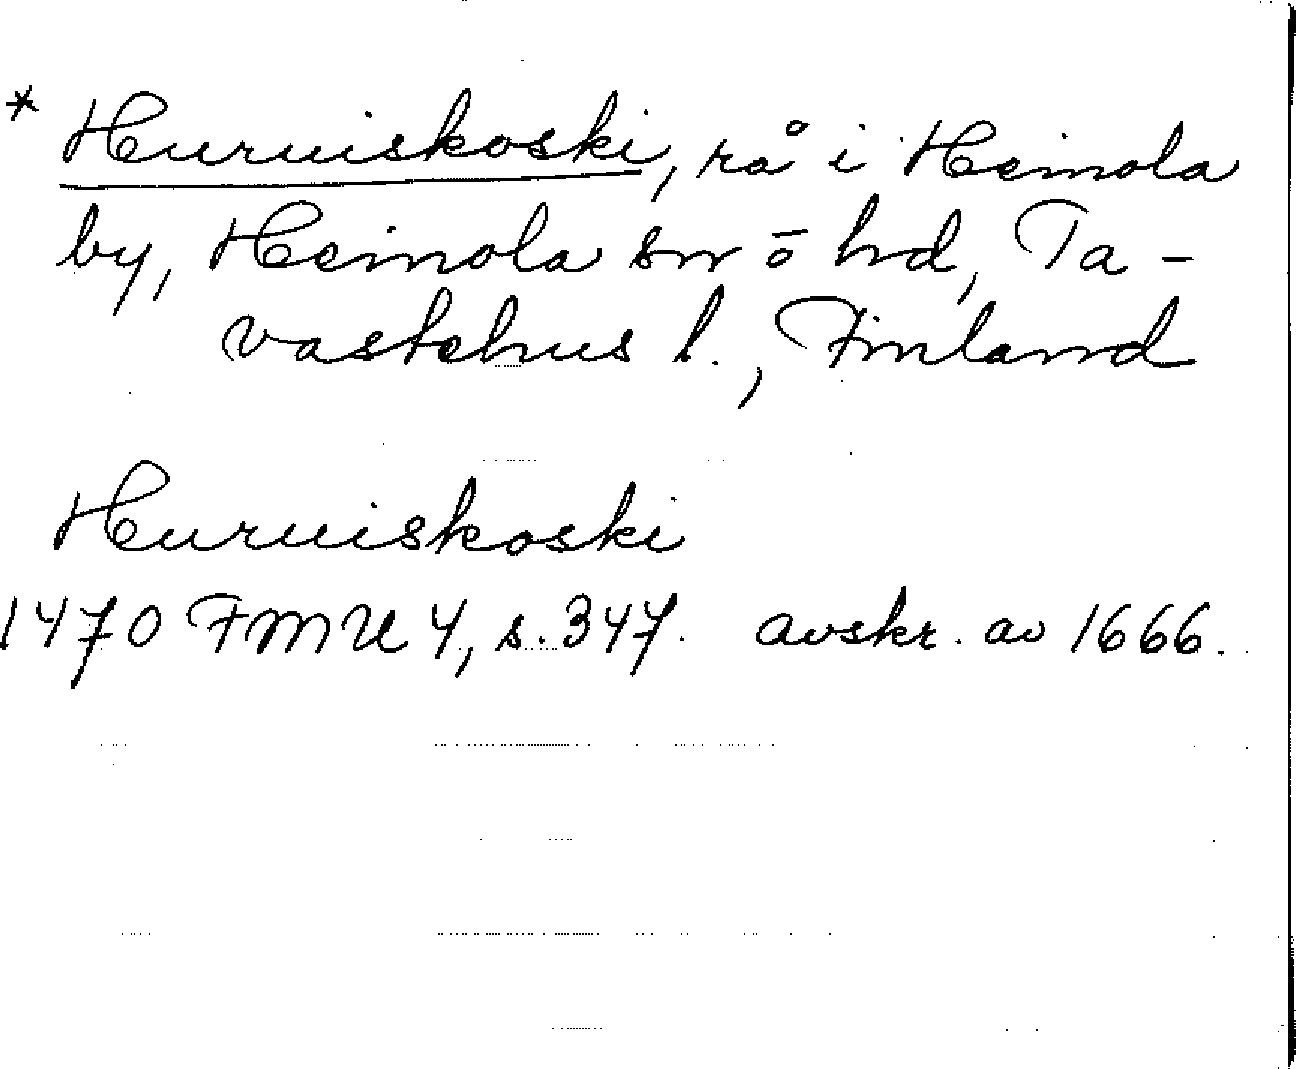 * Huruiskoski, rå i Heinola
by, Heinola sn ō hd, Ta-
vastehus l., Finland
Huruiskoski
1470 FMU 4, s. 347. avskr. av 1666.